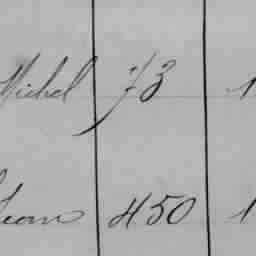 Michel 73 1
450 1